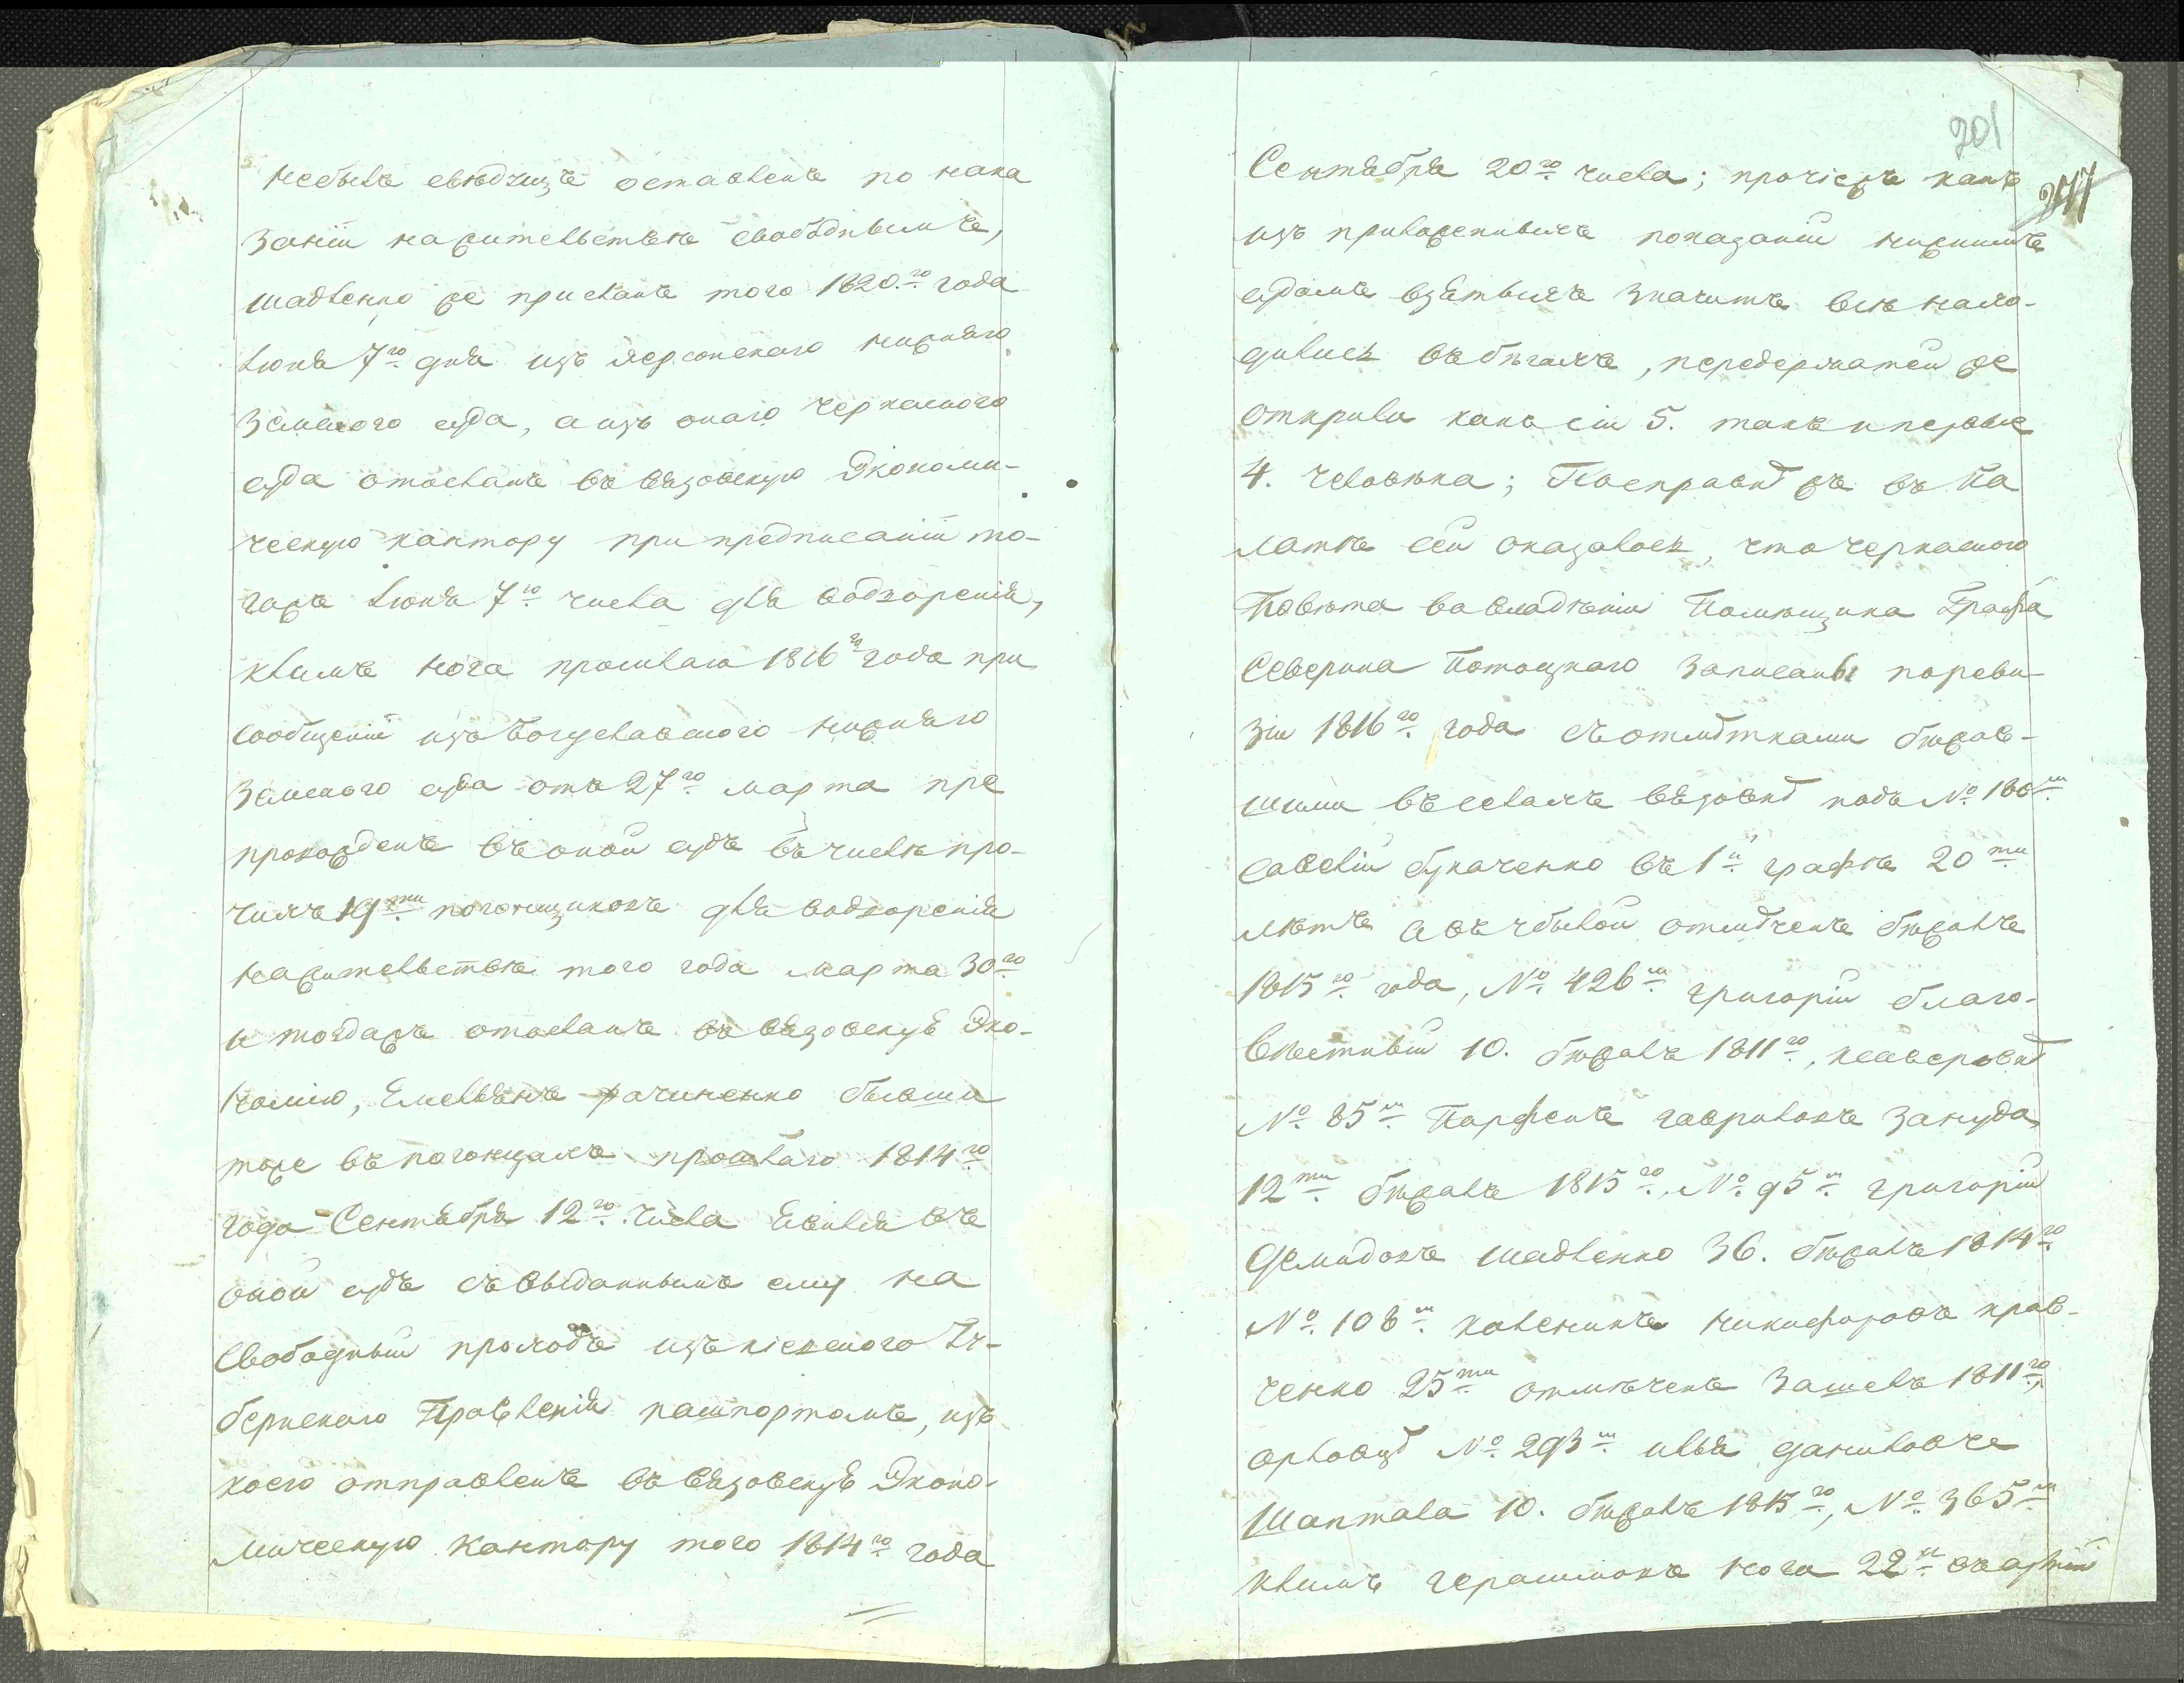 небылъ свѣдущъ оставленъ по нака
занiи нажительствѣ свободнымъ,
шадленко же присланъ того 1820го года
Iюня 7го дня изъ Херсонскаго нижняго
Земского суда, а изъ онаго черкаского
суда отосланъ въ вязовскую Экономи-
ческую кантору при предписанiи то-
гожъ Iюня 7го числа для водворенiя,
климъ нога прошлаго 1816го года при
сообщенiи изъ Богуславского нижняго
Земского суда отъ 27го марта пре
провожденъ въ оной судъ въ числѣ про-
чихъ 19ти погонщиковъ для водворенiя
нажительствѣ того года марта 30го
и тогдажъ отосланъ въ вязовскую Эко-
номiю, Емельянъ рачиненко бывши
тоже въ погонцахъ прошлаго 1814го
года Сентября 12го числа Явился въ
оной судъ съ выданнымъ ему на
Свободный проходъ изъ кiевского Гу-
бернскаго Правленiя пашпортомъ, изъ
коего отправленъ въ вязовскую Эконо-
мическую Кантору того 1814го года
201
Сентября 20го числа; прочiежъ какъ
изъ приложенныхъ показанiй нижнимъ
судомъ взятыхъ значитъ всѣ нахо-
дились въ бѣгахъ, передержателей же
открыли какъ сiи 5. такъ и первые
4. человѣка; Посправкѣ жъ въ Па
латѣ сей оказалось, что черкаского
Повѣта во владѣнiи Помѣщика Графа
Северина Потоцкаго Записаны пореви-
зiи 1816го года съ отмѣтками бѣжав-
шими въ селахъ вязовкѣ подъ №
Савелiй букаченко въ 1й графѣ 20ти
лѣтъ а въ убылой отмѣченъ бѣжавъ
1815го года, № 426м григорiй благо-
вѣстный 10. бѣжавъ 1811го,
№ 85м Парфенъ гавриловъ Зануда,
12ти бѣжавъ 1815го, № 95м григорiй
Демидовъ шадленко 36. бѣжавъ 1814го
№ 108м каленикъ никифоровъ крав-
ченко 25ти отмѣченъ Зашелъ 1811го,
орловцѣ № 293м илья даниловъ
Шаптала 10. бѣжавъ 1815го, № 365м
климъ герасимовъ нога 22х